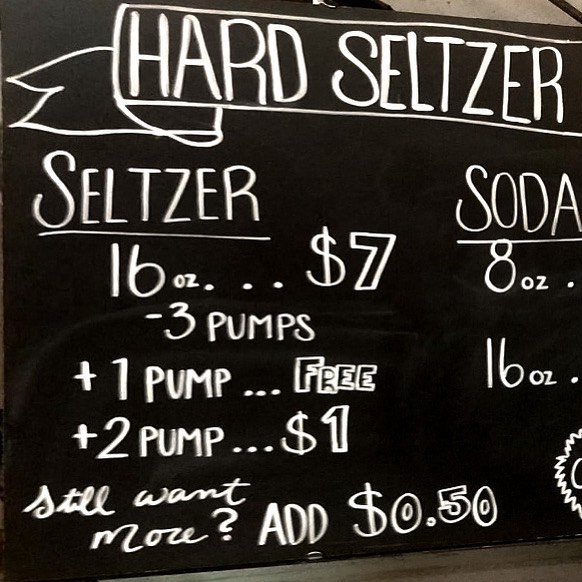 HARD SELTZER
SELTZER
16 oz. . . $7
-3 PUMPS
+1 PUMP ... FREE
+2 PUMP ... $1
Still want
more? ADD $0.50
SODA
8 oz .
16 oz .